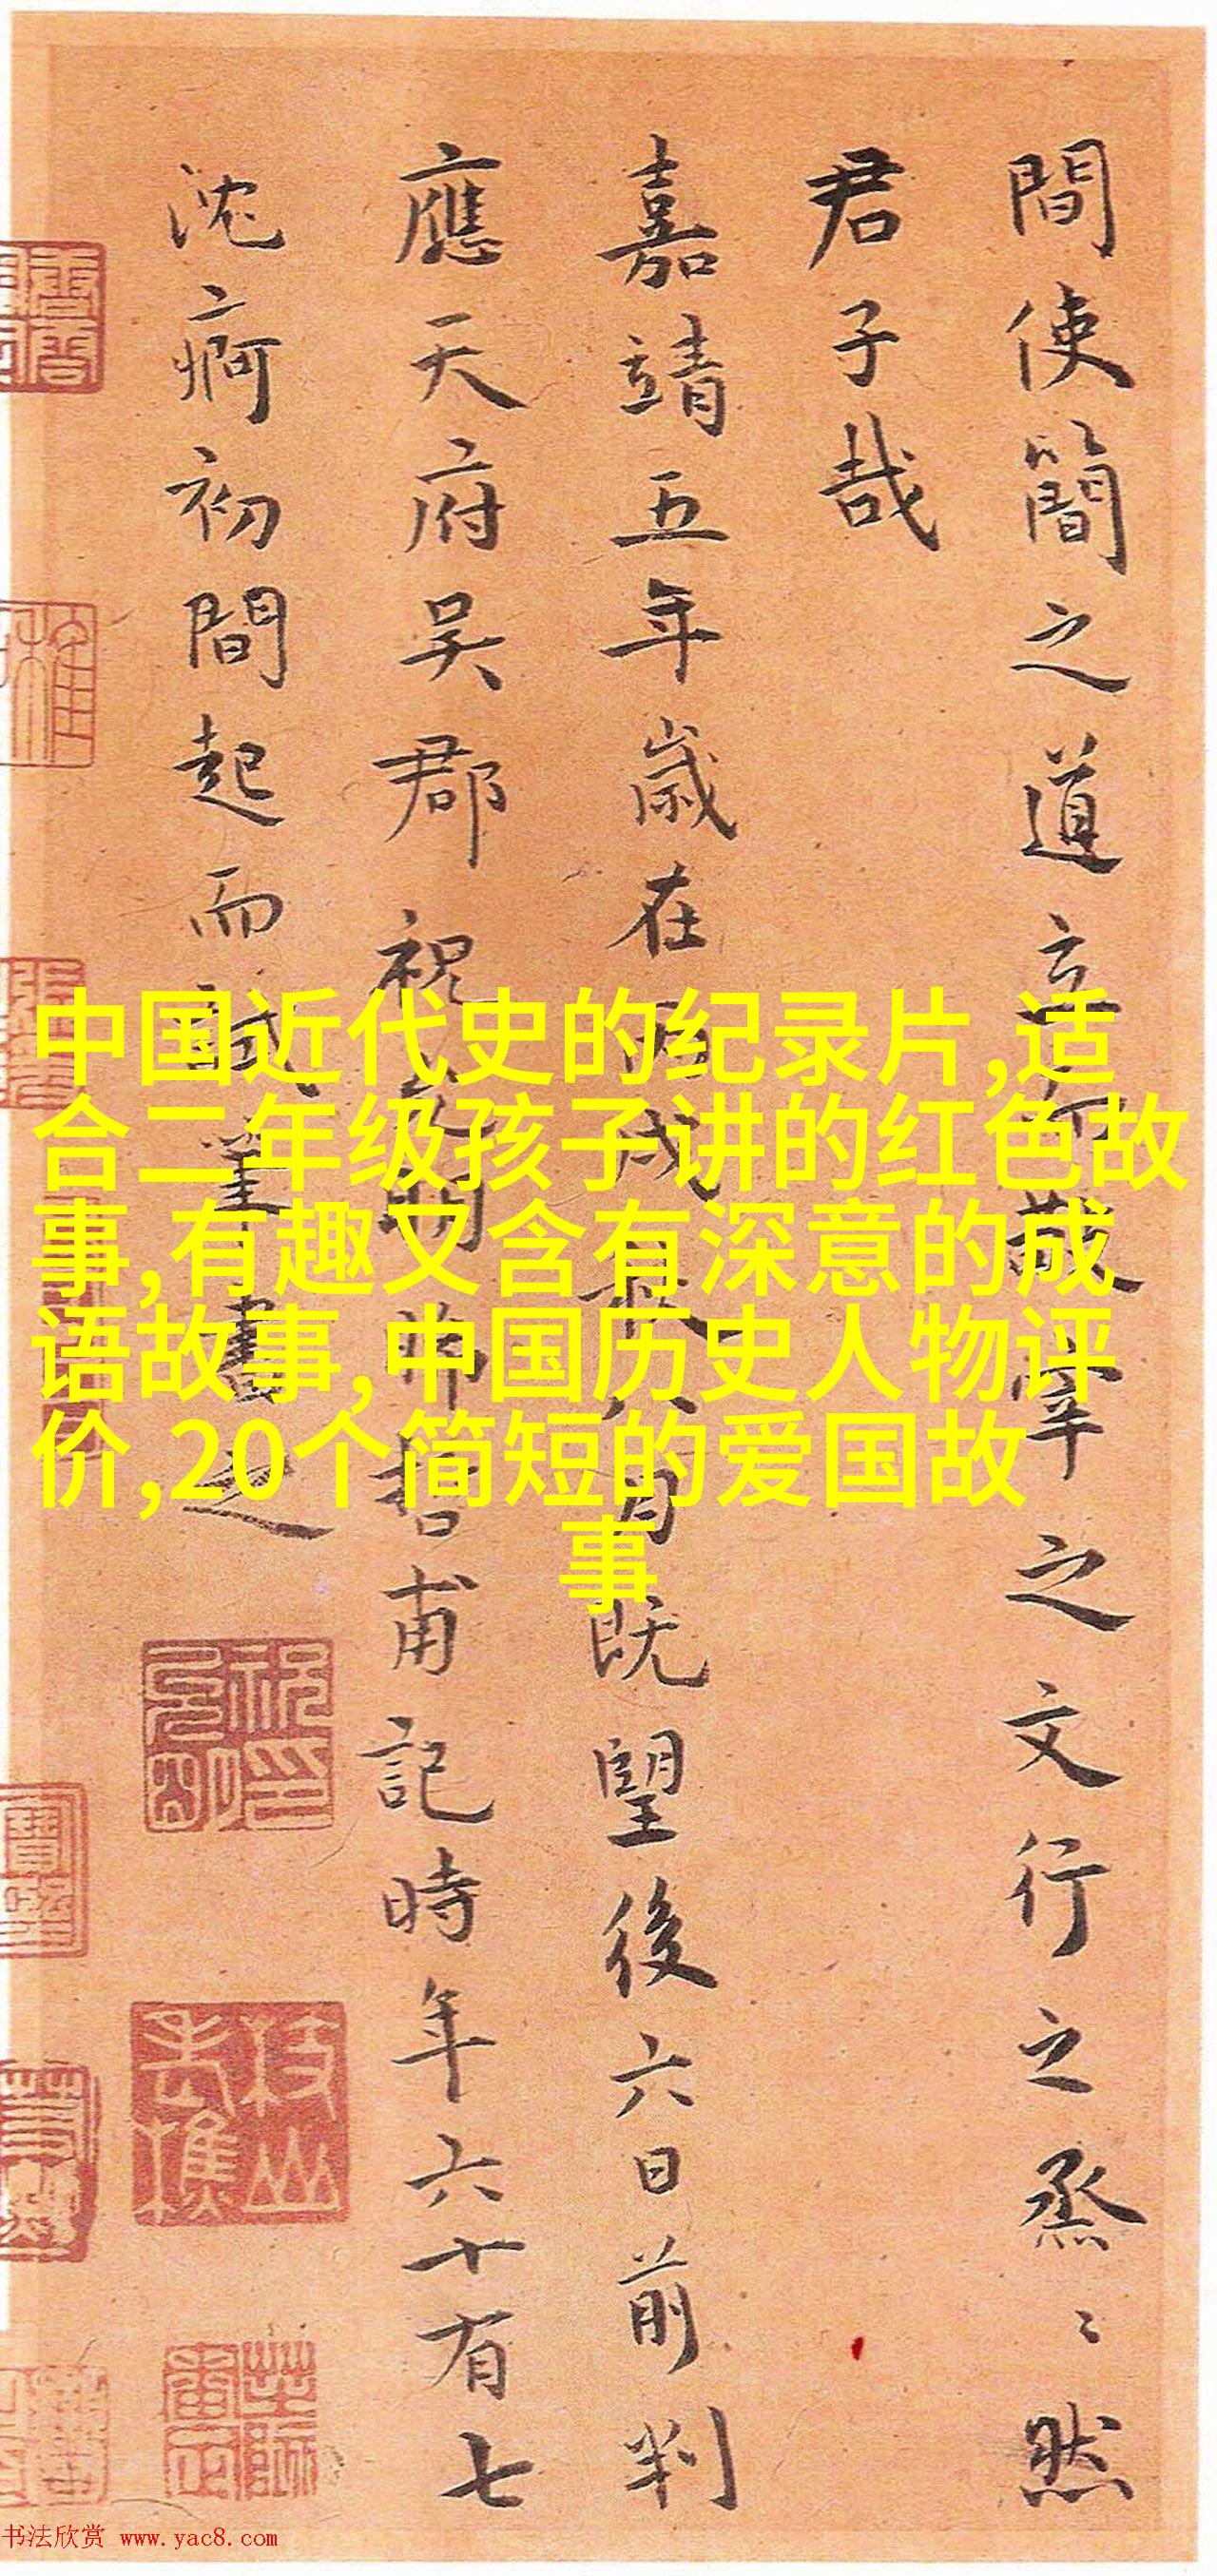 間使簡之道立敬宰之文行之烝〻然
君子哉
嘉靖五年歲在丙戌秋八月既望後六日前判
應天府吳郡祝允明希哲甫記時年六十有七
沈痾初間起而試筆書之
祝允明印
枝山老樵
中国近代史的纪录片,适
合二年级孩子讲的红色故
事,有趣又含有深意的成
语故事,中国历史人物评
价,20个简短的爱国故
事
书法欣赏 www.yac8.com